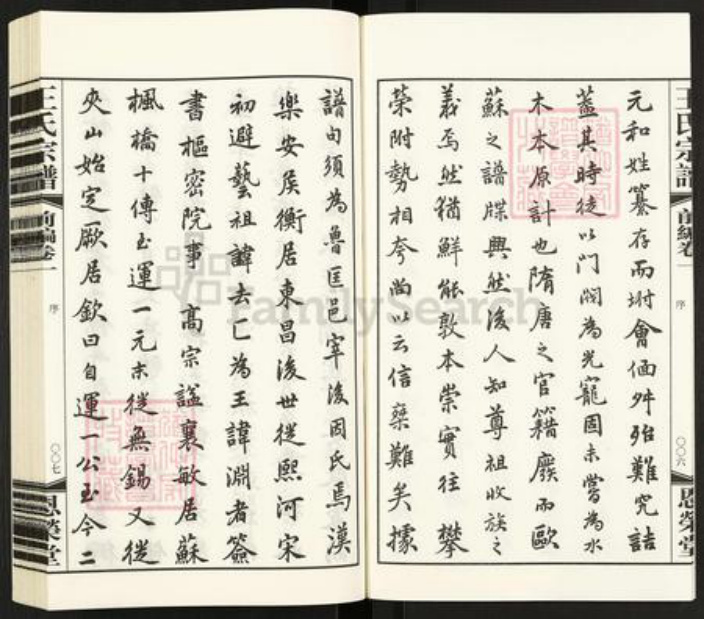 元和姓纂存而坿會偭舛殆難究詰
蓋其時徒以門閥為光寵固未嘗為水
木本原計也隋唐之官籍廢而歐
蘇之譜牒興然後人知尊祖收族之
義焉然猶鮮能敦本崇實往攀
榮附勢相夸尚以云信乘難矣據
譜句須為魯匡邑宰後因氏焉漢
樂安侯衡居東昌後世從熙河宋
初避藝祖諱去匚為王諱淵者簽
書樞密院事 高宗謚襄敏居蘇
楓橋十傳至運一元末從無錫又從
夾山始定厥居欽曰自運一公至今二
王氏宗譜 前編卷一 序 〇〇六 恩榮堂
王氏宗譜 前編卷一 序 〇〇七 恩榮堂
FamilySearch